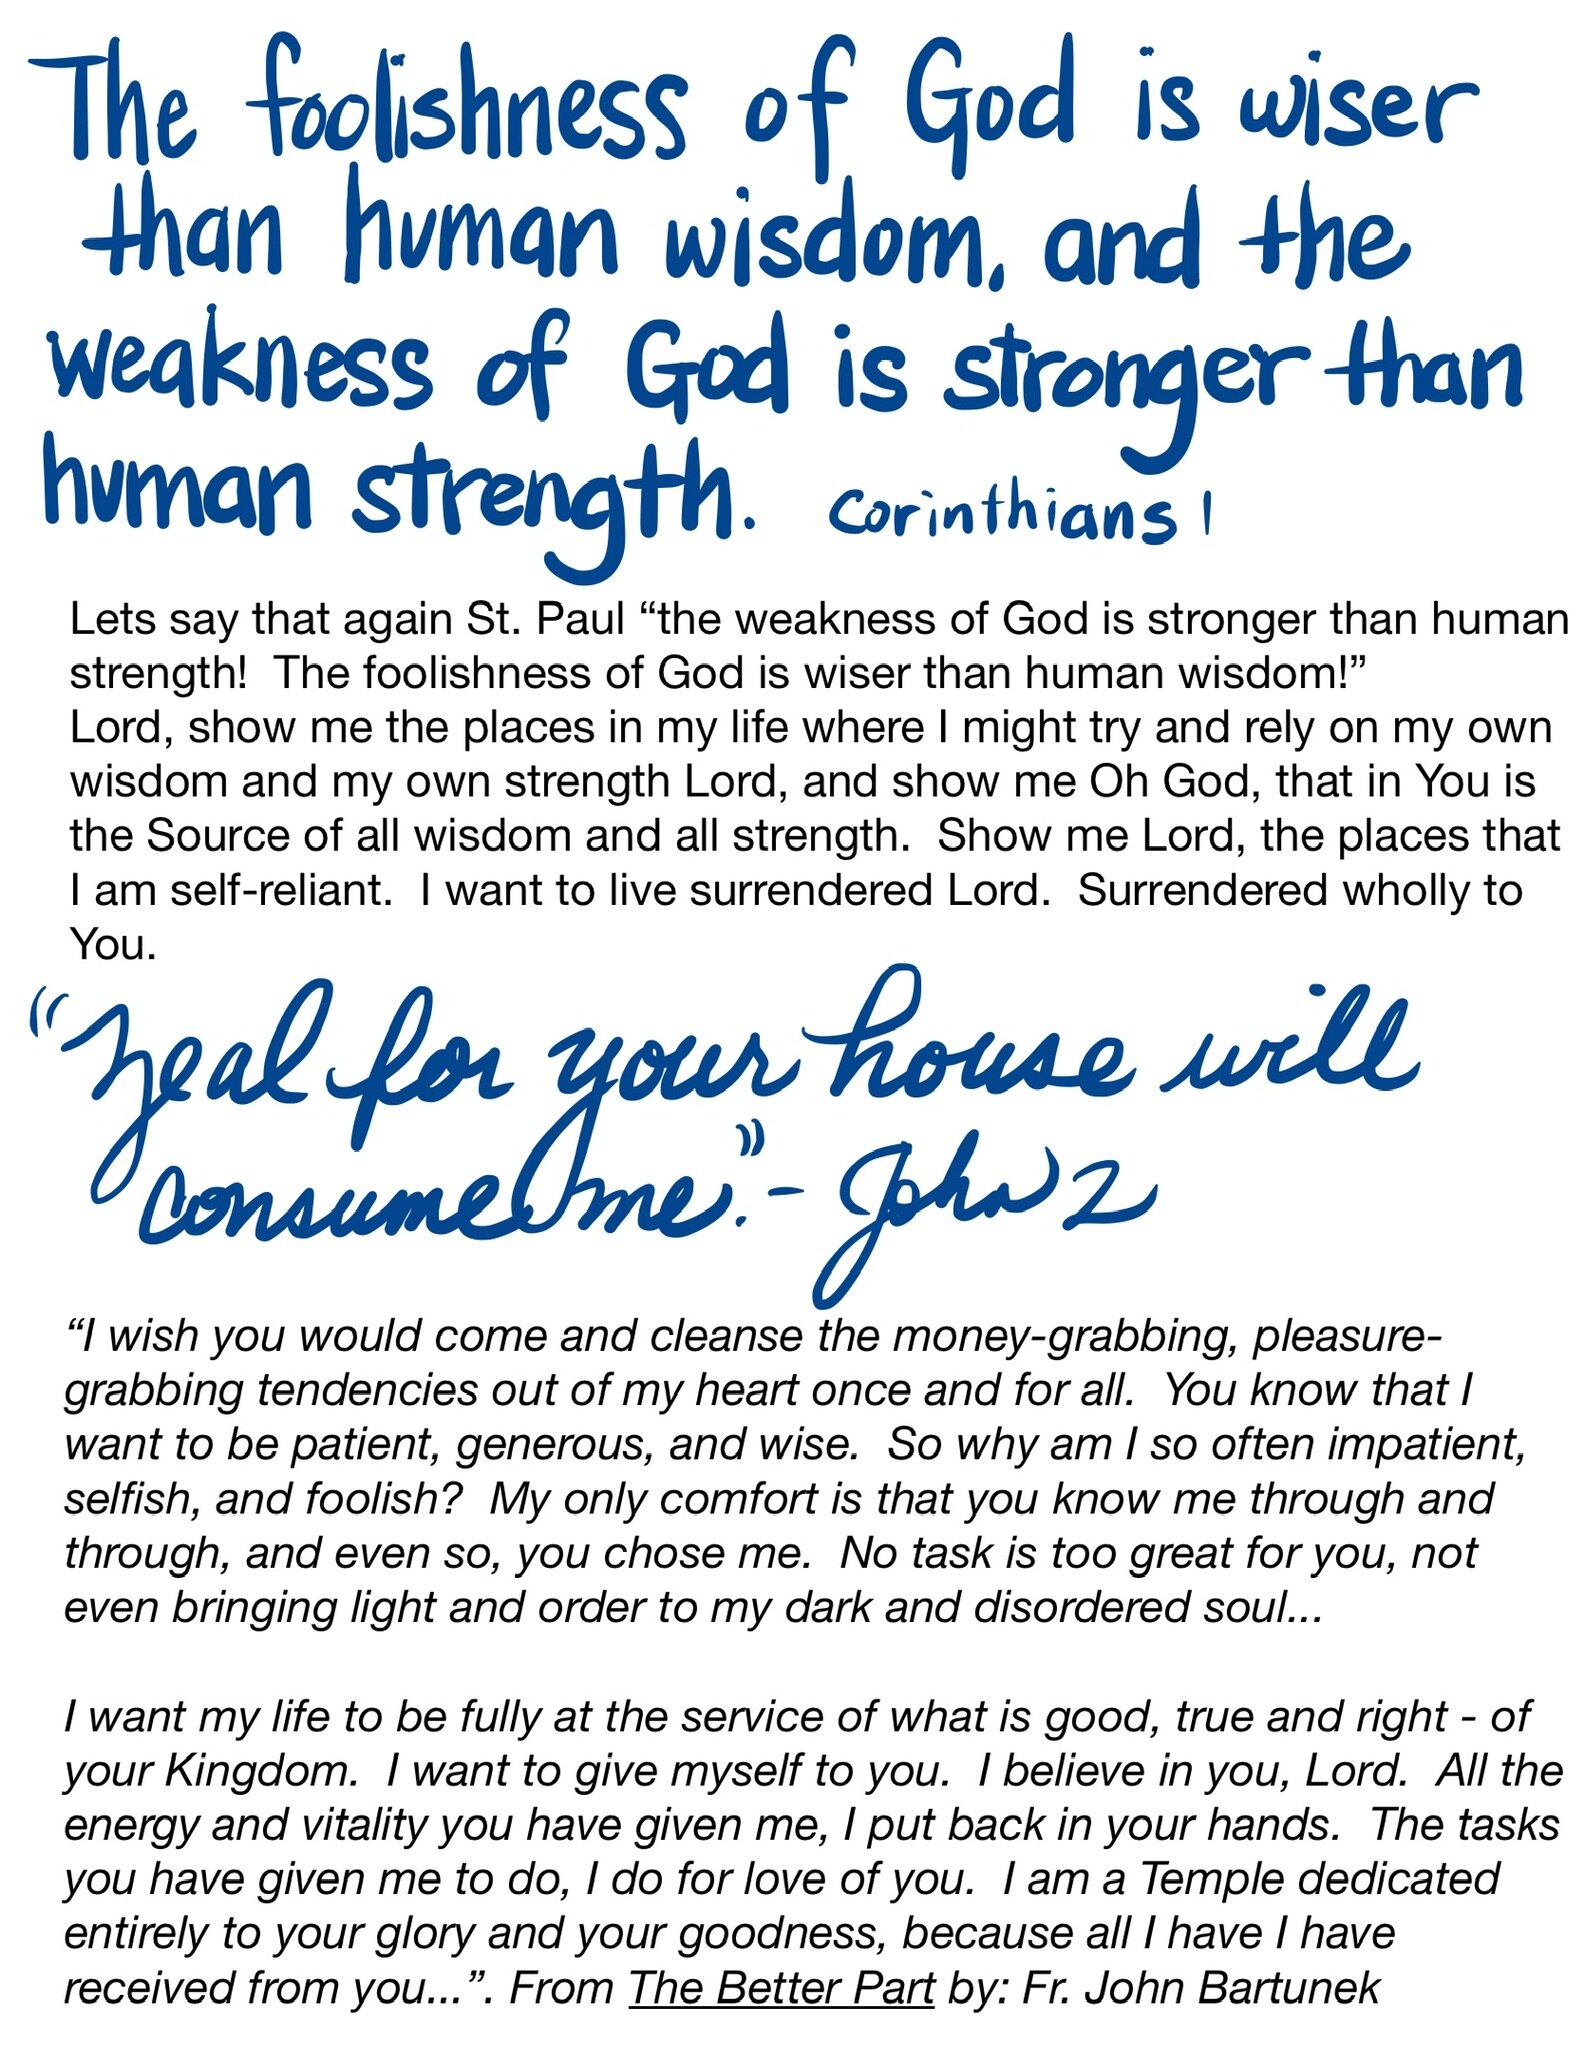 The foolishness of God is wiser
than human wisdom, and the
weakness of God is stronger than
human strength. Corinthians 1
Lets say that again St. Paul “the weakness of God is stronger than human
strength!  The foolishness of God is wiser than human wisdom!”
Lord, show me the places in my life where I might try and rely on my own
wisdom and my own strength Lord, and show me Oh God, that in You is
the Source of all wisdom and all strength.  Show me Lord, the places that
I am self-reliant.  I want to live surrendered Lord.  Surrendered wholly to
You.
“Zeal for your house will
consume me.” - John 2
“I wish you would come and cleanse the money-grabbing, pleasure-
grabbing tendencies out of my heart once and for all.  You know that I
want to be patient, generous, and wise.  So why am I so often impatient,
selfish, and foolish?  My only comfort is that you know me through and
through, and even so, you chose me.  No task is too great for you, not
even bringing light and order to my dark and disordered soul...
I want my life to be fully at the service of what is good, true and right - of
your Kingdom.  I want to give myself to you.  I believe in you, Lord.  All the
energy and vitality you have given me, I put back in your hands.  The tasks
you have given me to do, I do for love of you.  I am a Temple dedicated
entirely to your glory and your goodness, because all I have I have
received from you...”. From The Better Part by: Fr. John Bartunek